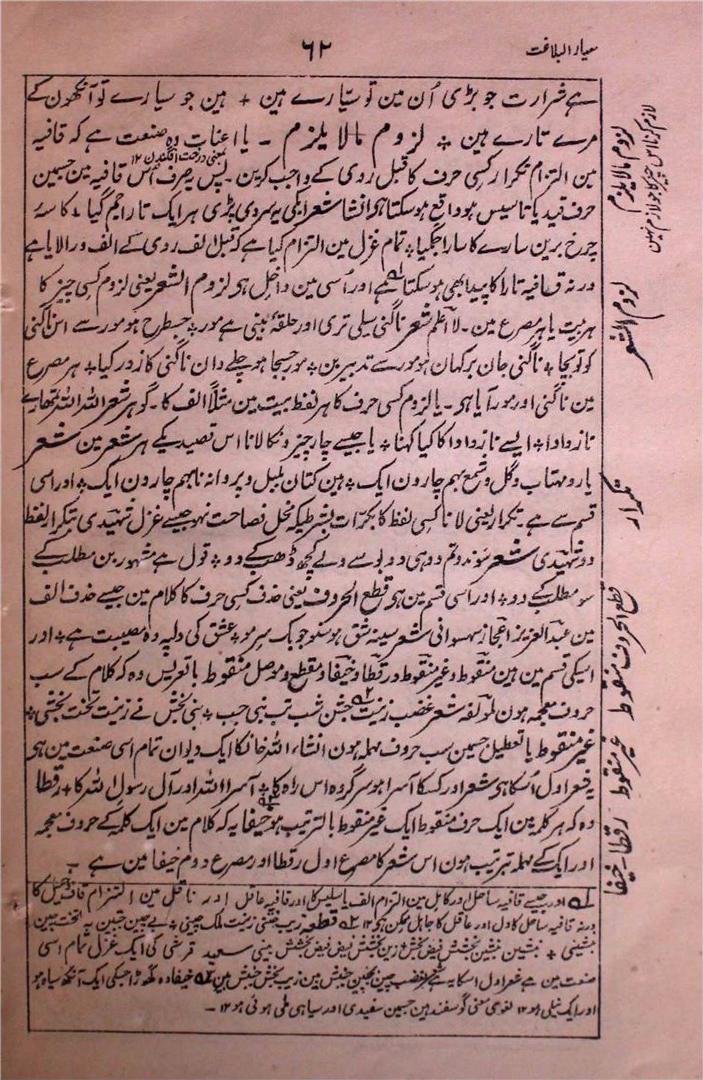 معیار البلاغت
۶۲
ہے شرارت جو بڑی اُن مین تو سیّارے ہین + ہین جو سیارے تو آنکھون کے
مرے تارے ہین + لزوم مالا یلزم ۔ یا اعنات وہ صنعت ہے کہ قافیہ
مین التزام تکرار کسی حرف کا قبل روی کے واجب کرین ۔ پس یہ صرف اُس قافیہ مین جسمین
حرف قید یا تاسیس ہو واقع ہو سکتا ہی انشا شعر ایکی یہ سردی پڑی ہر ایک تارا جم گیا + کاسۂ
چرخ برین سارے کا سارا جمگیا + تمام غزل مین التزام کیا ہے کہ قبل الف روی کے الف و را لایا ہے
ورنہ قافیہ تارا کا پیدا بھی ہو سکتا ہے اور اُسی مین داخل ہی لزوم الشعر یعنی لزوم کسی چیز کا
ہر بیت یا ہر مصرع مین ۔ لا اعلم شعر ناگنی سیلی تری اور حلقۂ بینی ہے مور + جسطرح ہو مور سے اس ناگنی
کو تو بچا + ناگنی جان برکہان ہو مور سے تدبیر بن + مور جیجا ہو چلے دان ناگنی کا زور کیا + ہر مصرع
مین ناگنی اور مور آیا ہی ۔ یا لزوم کسی حرف کا ہر لفظ بیت مین مثلاً الف کا ۔ گوہر شعر اللہ اللہ تمھارے
ناز و ادا + ایسے ناز و ادا کا کیا کہنا + یا جیسے چار چیزونکا لانا اس قصیدیکے ہر شعر مین شعر
یار و مہتاب و گل و شمع بہم چارون ایک + ہین کتان بلبل و پروانہ نا ہم چارون ایک + اور اسی
قسم سے ہے ۔ تکرار یعنی لانا کسی لفظ کا بکرّات بشرطیکہ مخل فصاحت نہو جیسے غزل تہیدی بتکرار لفظ
دو شہیدی شعر سو ندو تم دو ہی دو بوسے ولے کچھ ڈھب کے دو + قول ہے مشہور بن مطلب کے
سو مطلب کے دو + اور اسی قسم مین ہی قطع الحروف یعنی حذف کسی حرف کا کلام مین جیسے حذف الف
مین عبد العزیز اعجاز سہسوانی شعر سینہ شق ہو سنو جو یک سر مو + عشق کی دلپہ وہ مصیبت ہے + اور
اسیکی قسم مین ہین منقوط و غیر منقوط و رقطا و خیفا و مقطع و موصل منقوط یا تعریس وہ کہ کلام کے سب
حروف معجمہ ہون لمؤلفہ شعر غضب زینت جشن شب تب نبی جب + بنی بخش نے زینت تخت بخشی +
غیر منقوط یا تعطیل جسمین سب حروف مہملہ ہون انشاء اللہ خانکا ایک دیوان تمام اسی صنعت مین ہی
یہ شعر اول اُسکا ہی شعر اور کسکا آسرا ہو سرگروہ اس راہ کا + آسرا اللہ اور آل رسول اللہ کا + رقطا
وہ کہ ہر کلمہ مین ایک حرف منقوط ایک غیر منقوط بالترتیب ہو خیفا یہ کہ کلام مین ایک کلمہ کے حروف معجمہ
اور ایک کے مہملہ بترتیب ہون اس شعر کا مصرع اول رقطا اور مصرع دوم خیفا مین ہے ۔
۱؎ اور جیسے قافیہ ساحل اور کامل مین التزام الف تاسیس کا اور قافیہ عاقل اور ناقل مین التزام قاف دخیل کا
ورنہ قافیہ ساحل کا دل اور عاقل کا جاہل ممکن ہی ۱۲ ۲؎ قطعہ زیب بخشی زینت ملک چینی +
صنعت مین ہے شعر اول اسکا یہ شعر ۳؎ خیفا وہ گھوڑا جسکی ایک آنکھ سیاہ ہو
اور ایک نیلی ہو ۱۲ لغوی معنی گوسفند ہین جسمین سفیدی اور سیاہی ملی ہوئی ہو ۱۲ ۔
لزوم مالا یلزم
لازم کرنا اس چیز کا جو لازم نہین
لزوم الشعر
تکرار
قطع الحروف منقوط
غیر منقوط
رقطا ۔ خیفا